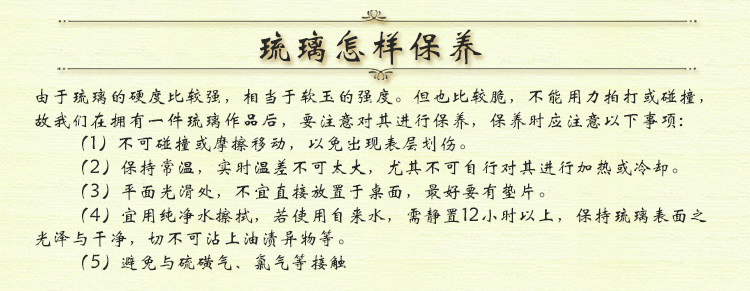 琉璃怎样保养
由于琉璃的硬度比较强，相当于软玉的强度。但也比较脆，不能用力拍打或碰撞，
故我们在拥有一件琉璃作品后，要注意对其进行保养，保养时应注意以下事项：
（1）不可碰撞或摩擦移动，以免出现表层划伤。
（2）保持常温，实时温差不可太大，尤其不可自行对其进行加热或冷却。
（3）平面光滑处，不宜直接放置于桌面，最好要有垫片。
（4）宜用纯净水擦拭，若使用自来水，需静置12小时以上，保持琉璃表面之
光泽与干净，切不可沾上油渍异物等。
（5）避免与硫磺气、氯气等接触